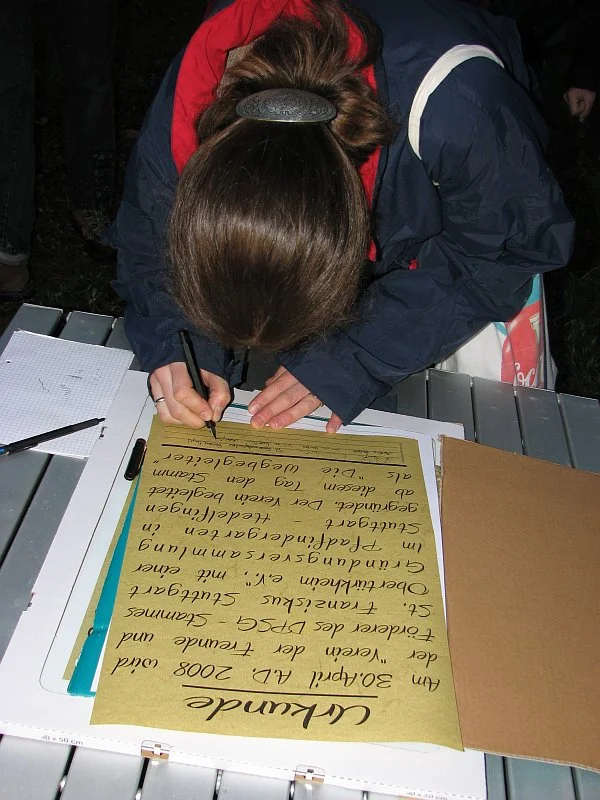 Urkunde
Am 30. April A.D. 2008 wird
der "Verein der Freunde und
Förderer des DPSG - Stammes
St. Franziskus Stuttgart
Obertürkheim e.V.", mit einer
Gründungsversammlung
im Pfadfindergarten in
Stuttgart - Hedelfingen
gegründet. Der Verein begleitet
ab diesem Tag den Stamm
als "Die Wegbegleiter"
40 x 50 cm